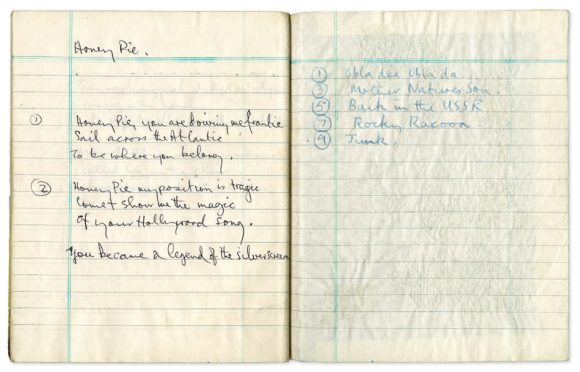 Honey Pie.
① Honey Pie, you are driving me frantic
Sail across the Atlantic
To be where you belong.
② Honey Pie my position is tragic
Come & show me the magic
Of your Hollywood song.
You became a legend of the silver screen
① Obla dee Obla da.
③ Mother Natures Son.
⑤ Back in the USSR
⑦ Rocky Racoon
⑨ Junk.